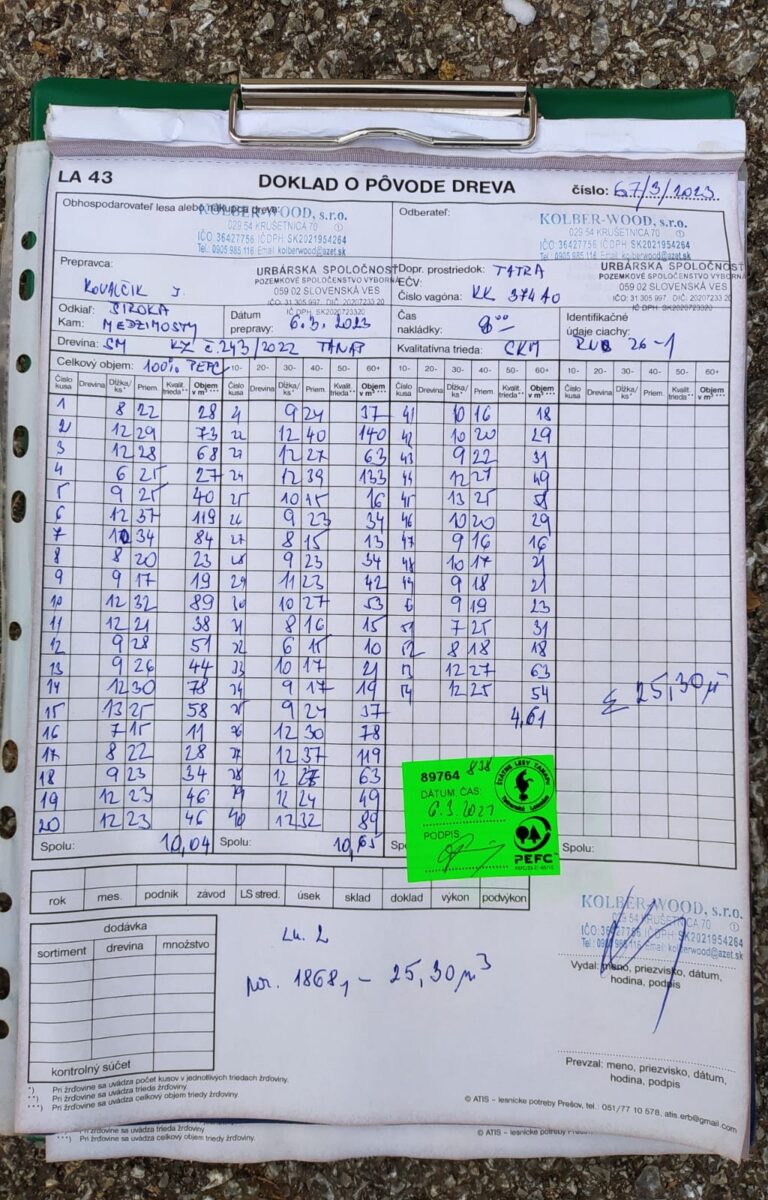 LA 43 DOKLAD O PÔVODE DREVA číslo: 67/3/2023
Obhospodarovateľ lesa alebo nákupca dreva:
KOLBER-WOOD, s.r.o.
029 54 KRUŠETNICA 70
IČO: 36427756 IČDPH: SK2021954264
Tel.: 0905 985 116 Email: kolberwood@azet.sk
Odberateľ:
KOLBER-WOOD, s.r.o.
029 54 KRUŠETNICA 70
IČO: 36427756 IČDPH: SK2021954264
Tel.: 0905 985 116 Email: kolberwood@azet.sk
Prepravca:
KOVALČIK J.
URBÁRSKA SPOLOČNOSŤ
POZEMKOVÉ SPOLOČENSTVO VÝBORNÁ
059 02 SLOVENSKÁ VES
IČO: 31 305 997 DIČ: 2020723320
IČ DPH: SK2020723320
Dopr. prostriedok: TATRA
EČV:
Číslo vagóna: KK 374AO
URBÁRSKA SPOLOČNOSŤ
POZEMKOVÉ SPOLOČENSTVO VÝBORNÁ
059 02 SLOVENSKÁ VES
IČO: 31 305 997 DIČ: 20207233 20
IČ DPH: SK2020723320
Odkiaľ: ŠIROKA
Kam: MEDZIMOSTY
Dátum prepravy: 6.3.2023
Čas nakládky: 8 00
Identifikačné údaje ciachy: 26-1
Drevina: SM KZ č.243/2022 TANAP
Kvalitatívna trieda:
Celkový objem: 100% PEFC 10- 20- 30- 40- 50- 60+ 10- 20- 30- 40- 50- 60+ 10- 20- 30- 40- 50- 60+
Číslo kusa Drevina Dĺžka/ks* Priem. Kvalit. trieda** Objem v m³*** Číslo kusa Drevina Dĺžka/ks* Priem. Kvalit. trieda** Objem v m³*** Číslo kusa Drevina Dĺžka/ks* Priem. Kvalit. trieda** Objem v m³*** Číslo kusa Drevina Dĺžka/ks* Priem. Kvalit. trieda** Objem v m³***
1 8 22 28 9 24 37 41 10 16 18
2 12 29 73 22 12 40 140 42 10 20 29
3 12 28 68 23 12 27 63 43 9 22 31
4 6 25 27 24 12 39 133 44 12 27 49
5 9 25 40 25 10 15 16 45 13 25 58
6 12 37 119 26 9 23 34 46 10 20 29
7 10 34 84 27 8 15 13 47 9 16 16
8 8 20 23 28 9 23 34 48 10 17 21
9 9 17 19 29 11 23 42 49 9 18 21
10 12 32 89 30 10 27 53 9 19 23
11 12 21 38 31 8 16 15 51 7 25 31
12 9 28 51 32 6 15 10 52 8 18 18
13 9 26 44 33 10 17 21 12 27 63
14 12 30 78 34 9 17 19 12 25 54 Σ 25,30 m³
15 13 25 58 9 24 37 4,61
16 7 15 11 12 30 78
17 8 22 28 12 37 119
18 9 23 34 12 27 63
19 12 23 46 12 24 49
20 12 23 46 40 12 32 89
Spolu: 10,04 Spolu: 10,65 Spolu:
89764 838
DÁTUM, ČAS:
PODPIS
ŠTÁTNE LESY TANAPu
PEFC
rok mes. podnik závod LS stred. úsek sklad doklad výkon podvýkon
dodávka
sortiment drevina množstvo
kontrolný súčet
1868, – 25,30 m³
KOLBER-WOOD, s.r.o.
029 54 KRUŠETNICA 70
IČO: 36427756 IČDPH: SK2021954264
Tel.: 0905 985 116 Email: kolberwood@azet.sk
Vydal: meno, priezvisko, dátum, hodina, podpis
Prevzal: meno, priezvisko, dátum, hodina, podpis
*) Pri žrďovine sa uvádza počet kusov v jednotlivých triedach žrďoviny.
**) Pri žrďovine sa uvádza trieda žrďoviny.
***) Pri žrďovine sa uvádza celkový objem triedy žrďoviny.
© ATIS – lesnícke potreby Prešov, tel.: 051/77 10 578, atis.erb@gmail.com
***) Pri žrďovine sa uvádza celkový objem triedy žrďoviny.
© ATIS – lesnícke potreby Prešov, tel.: 051/77 10 578, atis.erb@gmail.com